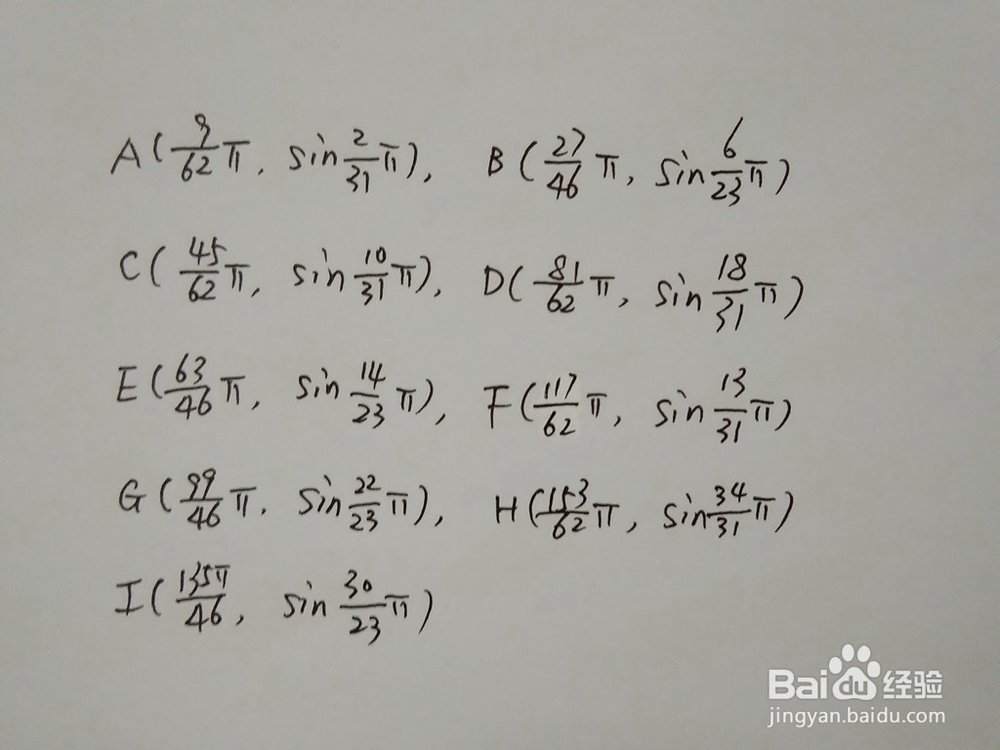 A(9/62 π, sin 2/31 π), B(27/46 π, sin 6/23 π)
C(45/62 π, sin 10/31 π), D(81/62 π, sin 18/31 π)
E(63/46 π, sin 14/23 π), F(117/62 π, sin 13/31 π)
G(99/46 π, sin 22/23 π), H(153/62 π, sin 34/31 π)
I(135π/46, sin 30/23 π)
Baidu 经验
jingyan.baidu.com